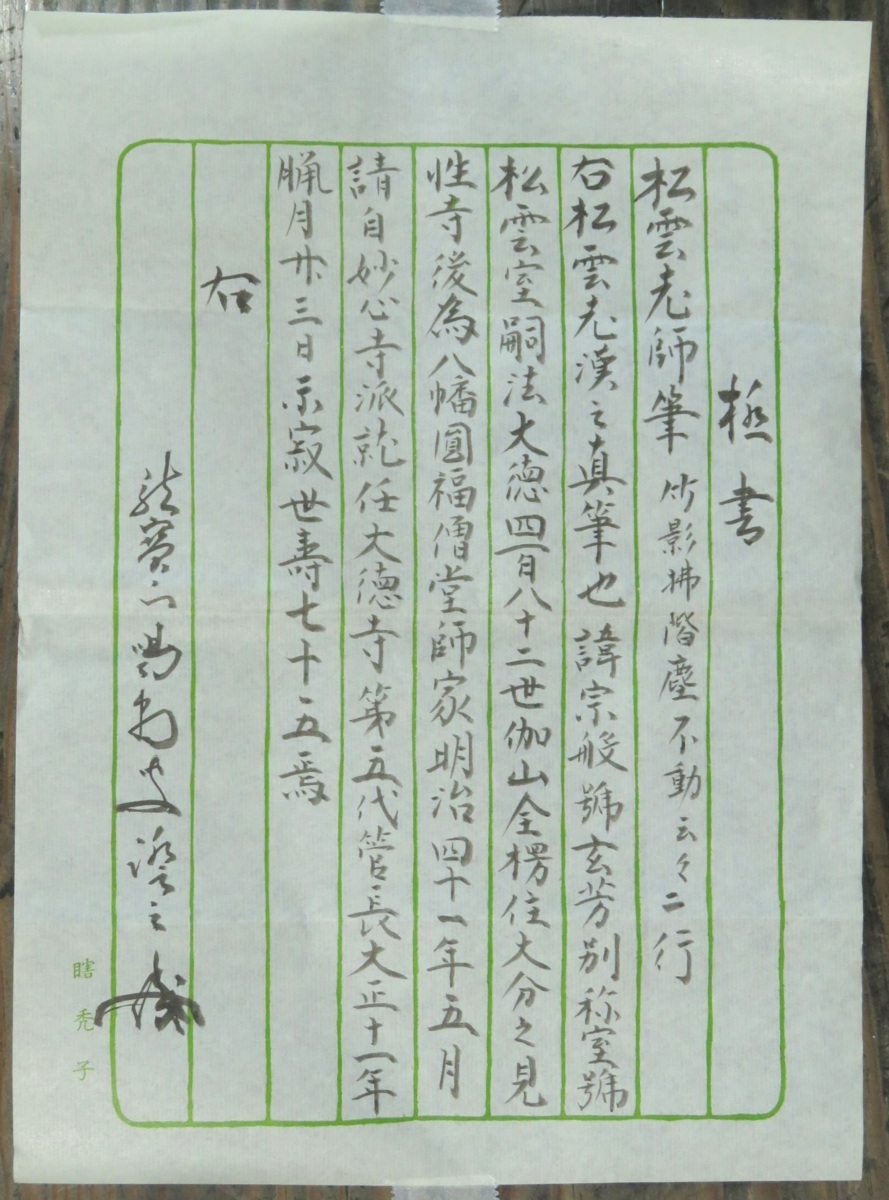 極書
松雲老師筆 竹影拂階塵不動云々二行
右松雲老漢之真筆也諱宗般號玄芳別称室號
松雲室嗣法大德四百八十二世伽山全楞住大分之見
性寺後為八幡圓福僧堂師家明治四十一年五月
請自妙心寺派就任大德寺第五代管長大正十一年
臘月廿三日示寂世壽七十五焉
右
龍寶山 證之
瞎禿子